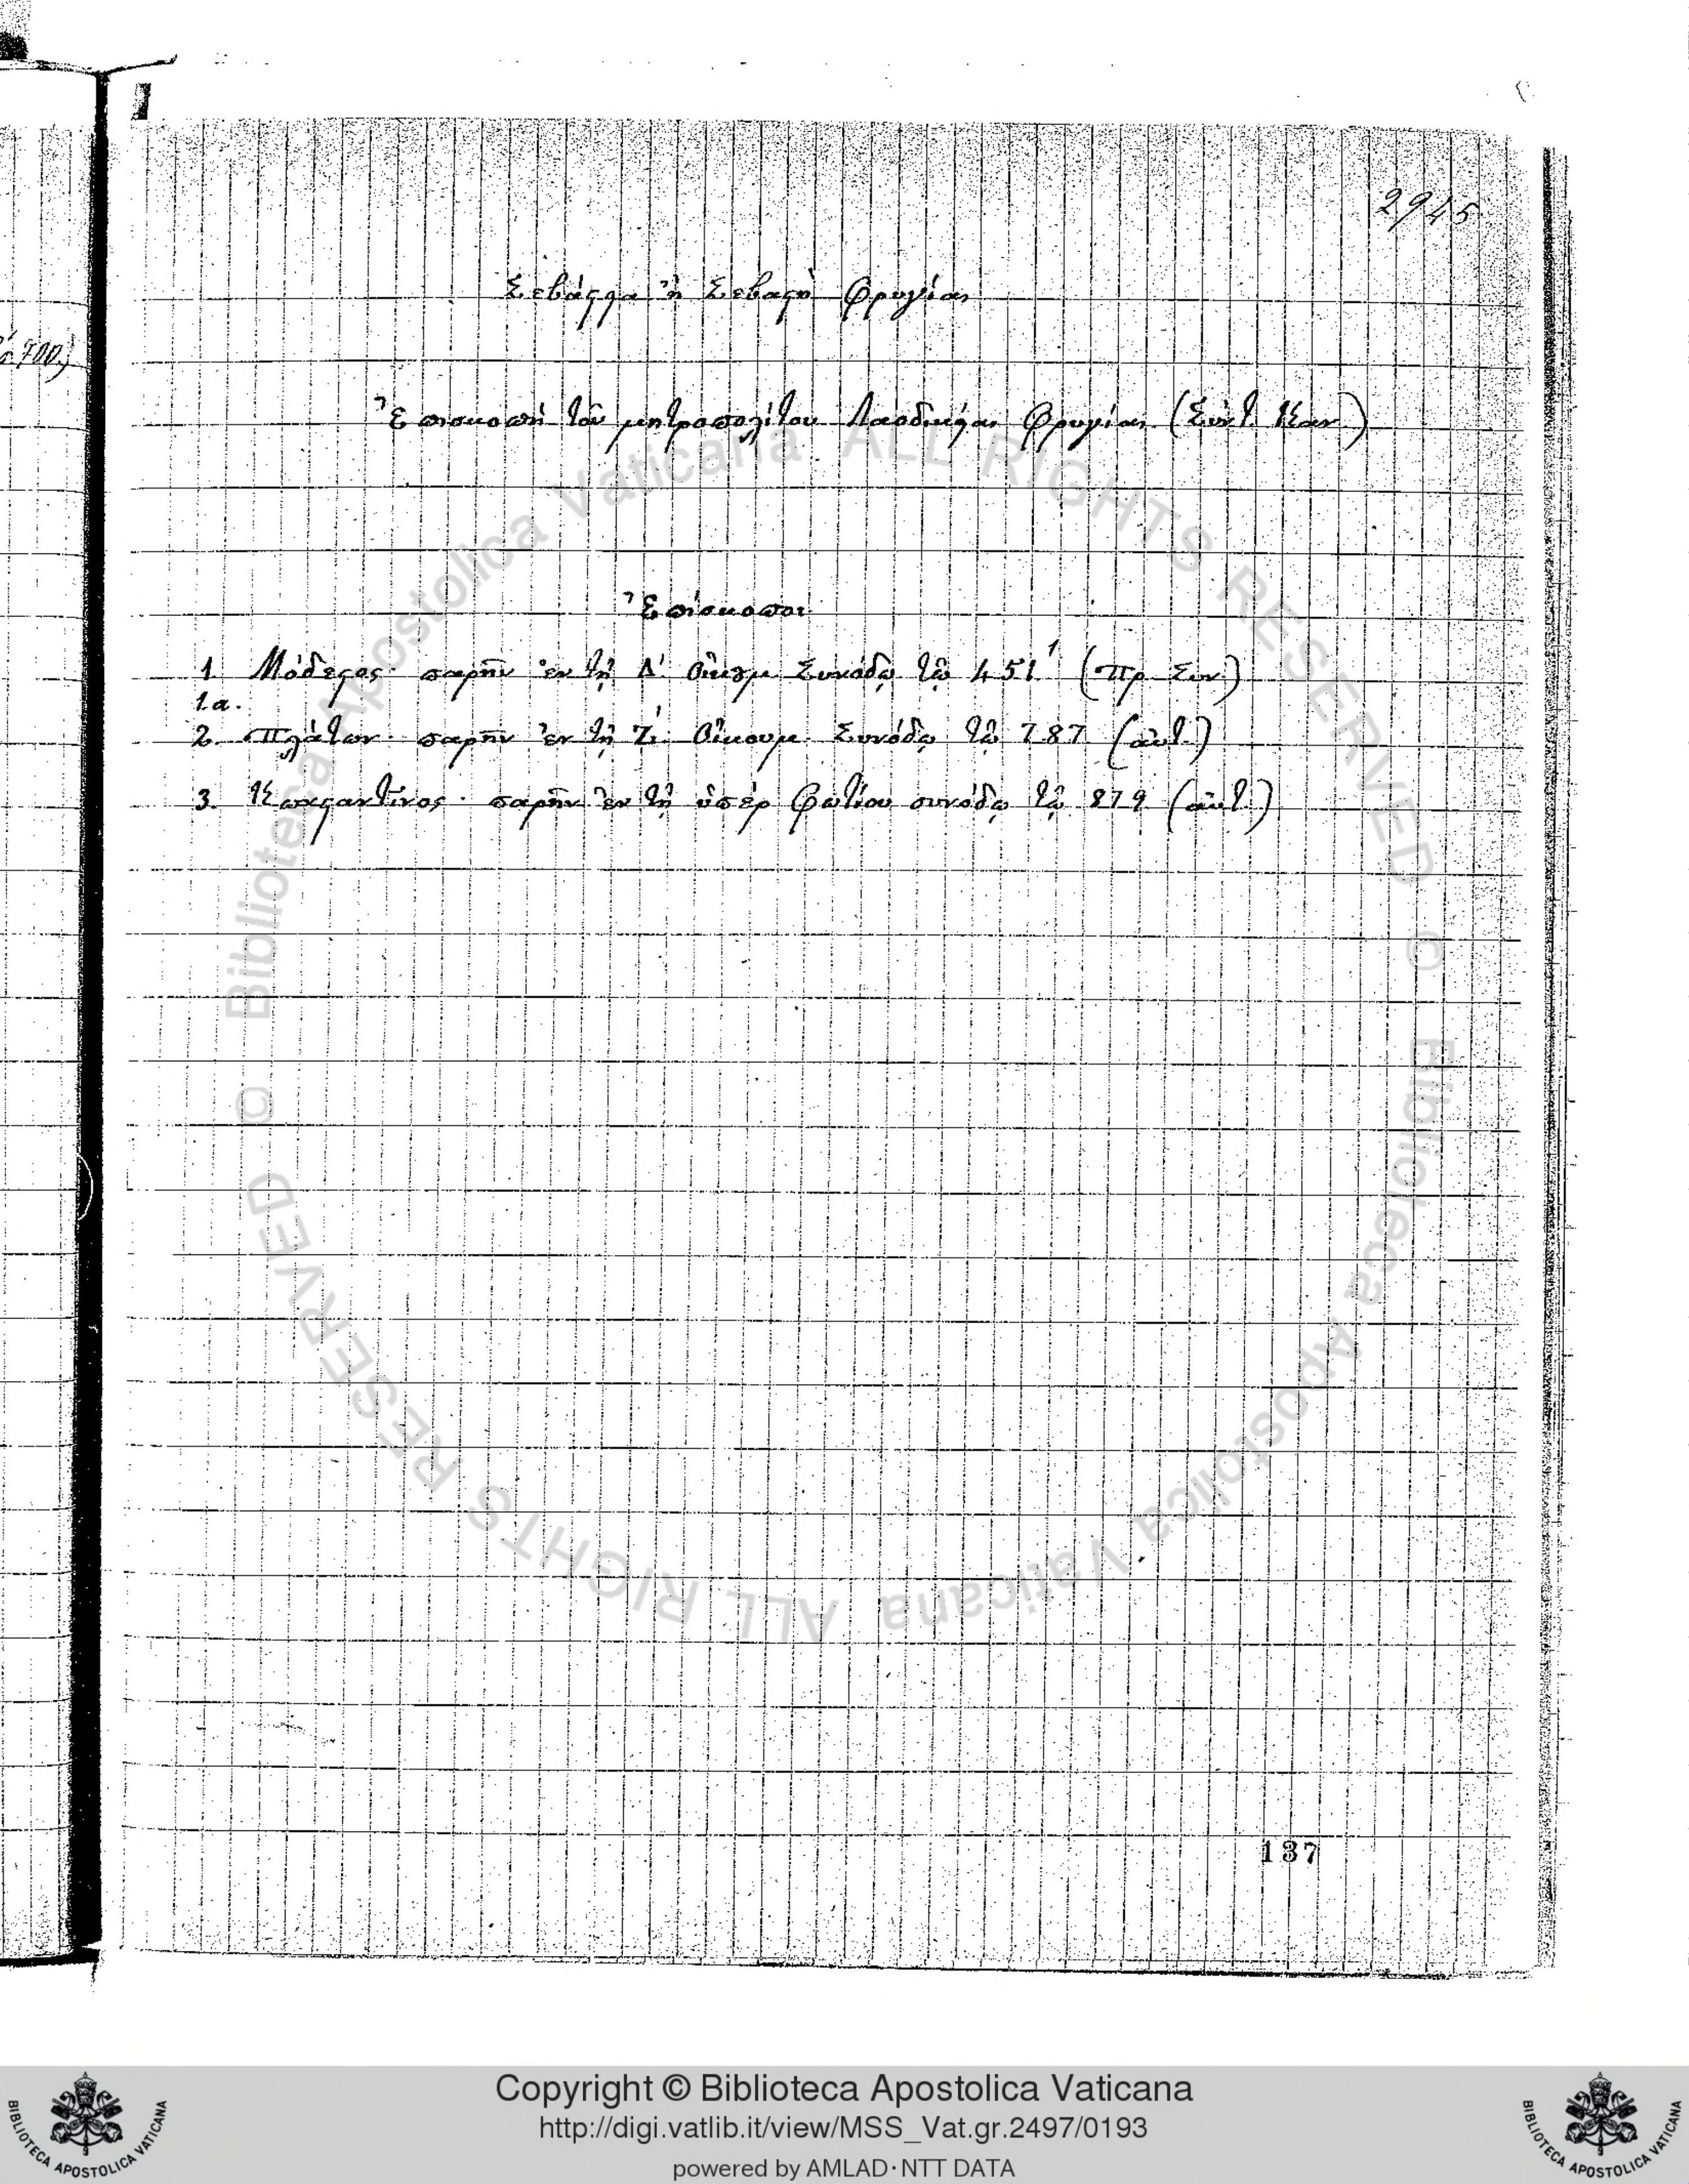 2945
Σεβάστα ἢ Σεβαστὴ Φρυγίας
Ἐπισκοπὴ τοῦ μητροπολίτου Λαοδικείας Φρυγίας (Σύντ. Καν.)
Ἐπίσκοποι
1 Μόδεστος· παρῆν ἐν τῇ Δ' Οἰκουμ Συνόδῳ τῷ 451 (Πρ. Συν.)
1.α.
2 Πλάτων· παρῆν ἐν τῇ Ζ' Οἰκουμ. Συνόδῳ τῷ 787 (αὐτ.)
3. Κωνσταντῖνος· παρῆν ἐν τῇ ὑπὲρ Φωτίου συνόδῳ τῷ 879 (αὐτ.)
700)
137
© Biblioteca Apostolica Vaticana ALL RIGHTS RESERVED
© Biblioteca Apostolica Vaticana ALL RIGHTS RESERVED
Copyright © Biblioteca Apostolica Vaticana
http://digi.vatlib.it/view/MSS_Vat.gr.2497/0193
powered by AMLAD·NTT DATA
BIBLIOTECA APOSTOLICA VATICANA
BIBLIOTECA APOSTOLICA VATICANA